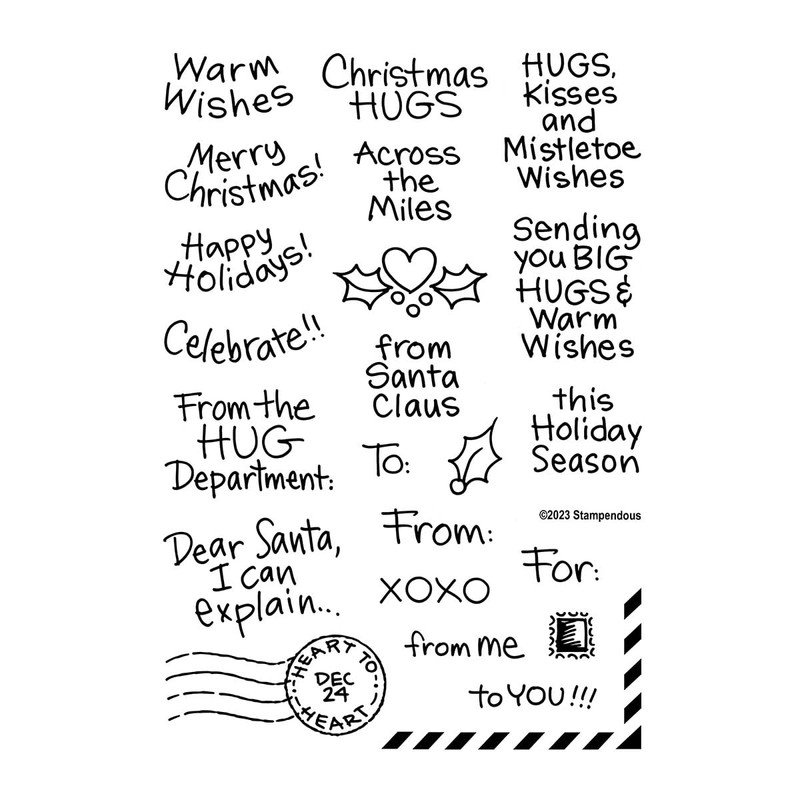 Warm
Wishes
Merry
Christmas!
Happy
Holidays!
Celebrate!!
From the
HUG
Department:
Dear Santa,
I can
explain...
HEART TO
DEC
24
HEART
Christmas
HUGS
Across
the
Miles
from
Santa
Claus
To:
From:
XOXO
from me
to YOU!!!
HUGS,
Kisses
and
Mistletoe
Wishes
Sending
you BIG
HUGS &
Warm
Wishes
this
Holiday
Season
©2023 Stampendous
For: